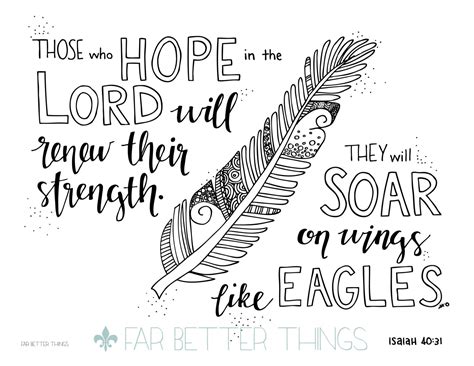 THOSE who HOPE in the
LORD will
renew their
strength.
THEY will
SOAR
on wings
like EAGLES.
FAR BETTER THINGS
FAR BETTER THINGS
ISAIAH 40:31